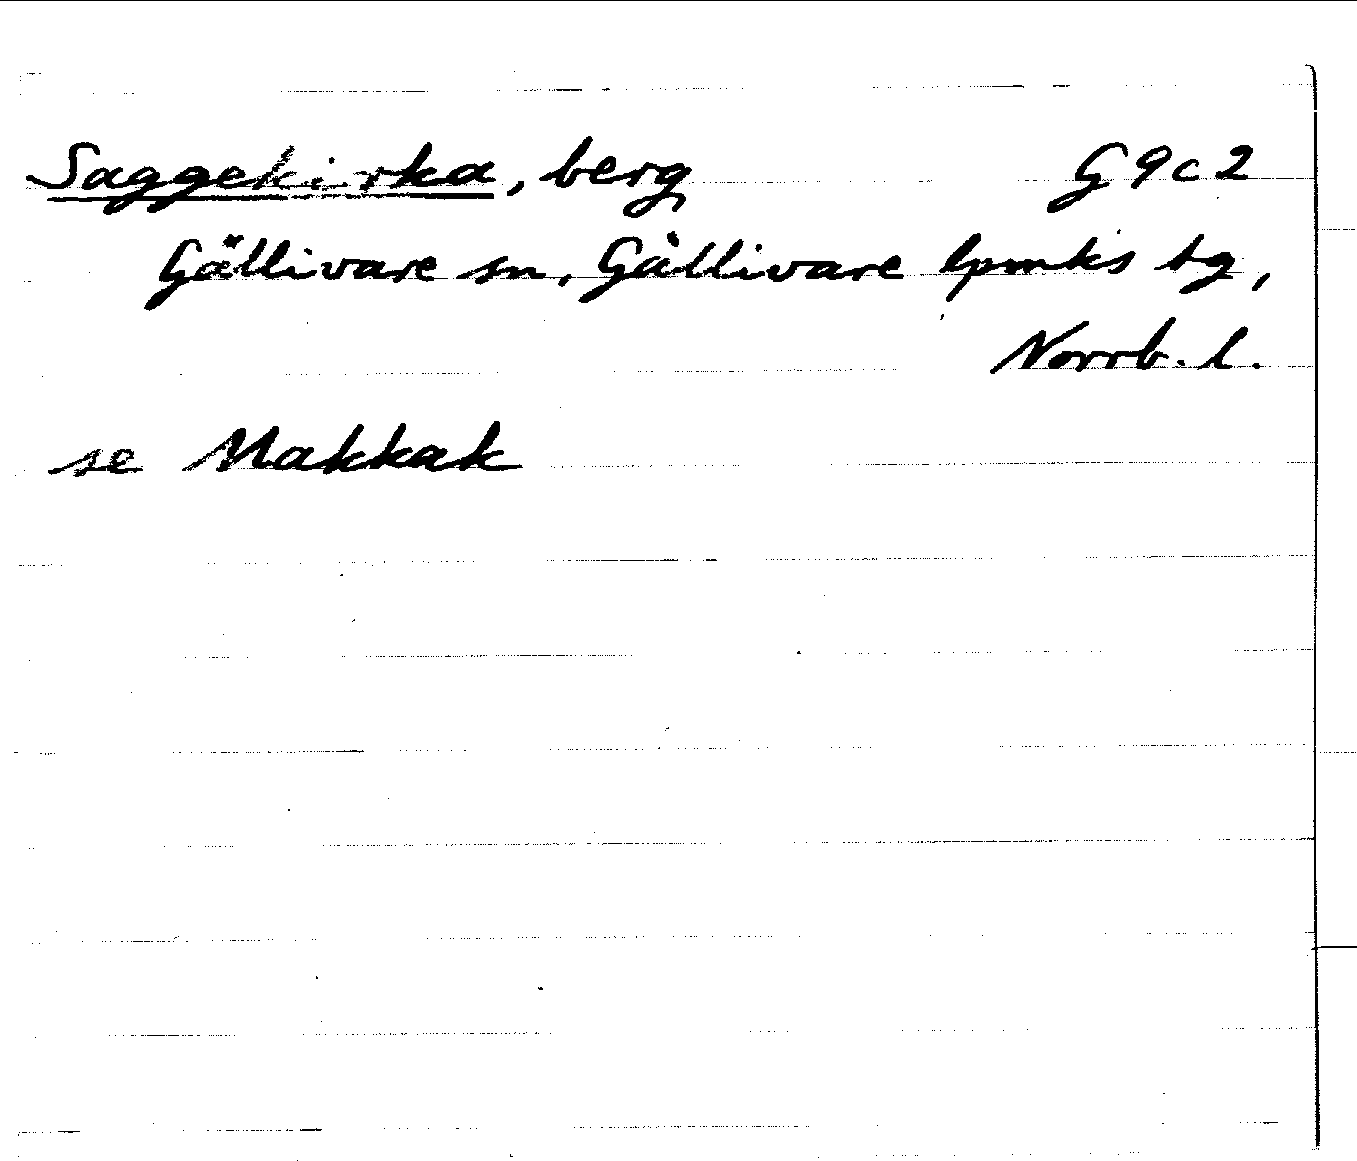 Saggekirka, berg G9c2
Gällivare sn, Gällivare lpmks tg,
Norrb. l.
se Makkak